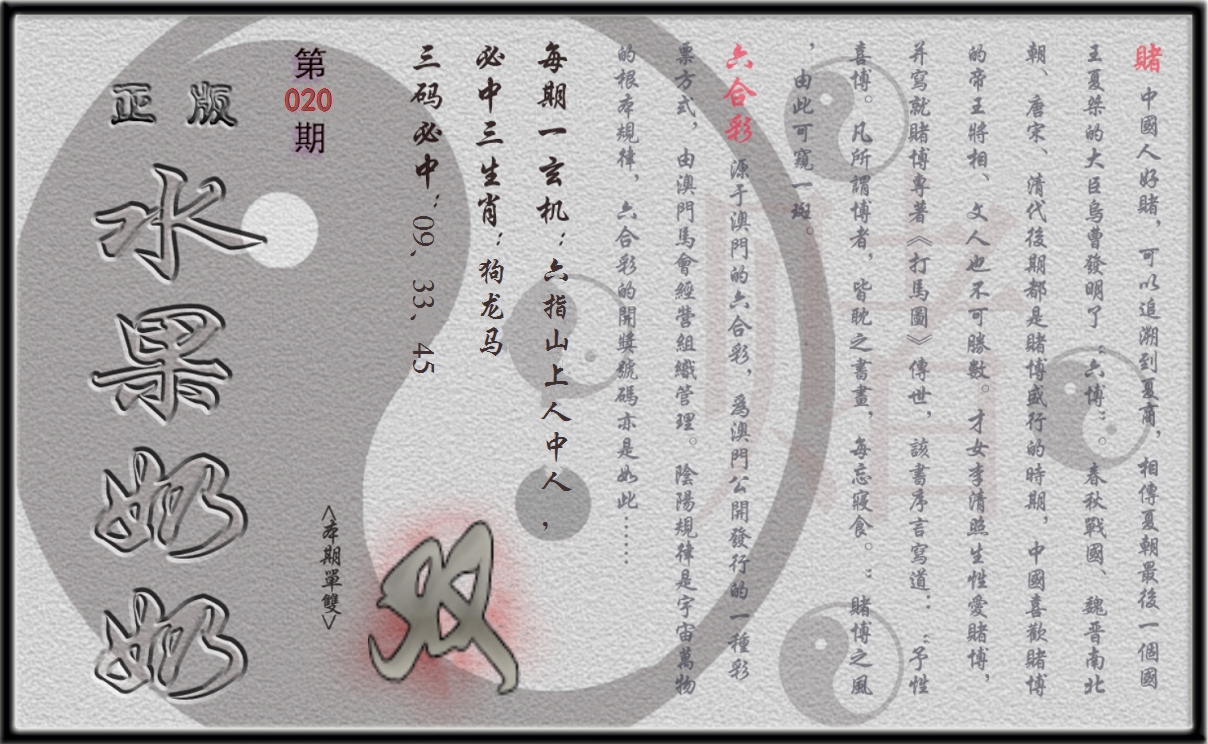 賭 中國人好賭，可以追溯到夏商，相傳夏朝最後一個國
王夏桀的大臣烏曹發明了“六博”。春秋戰國、魏晋南北
朝、唐宋、清代後期都是賭博盛行的時期，中國喜歡賭博
的帝王將相、文人也不可勝數。才女李清照生性愛賭博，
并寫就賭博專著《打馬圖》傳世，該書序言寫道：“予性
喜博。凡所謂博者，皆耽之書畫，每忘寢食。：賭博之風
，由此可窺一斑。
六合彩 源于澳門的六合彩，爲澳門公開發行的一種彩
票方式，由澳門馬會經營組織管理。陰陽規律是宇宙萬物
的根本規律，六合彩的開獎號碼亦是如此……
每期一玄机：六指山上人中人，
必中三生肖：狗龙马
三码必中：09、33、45
双
<本期單雙>
第
020
期
正版
水果奶奶
賭